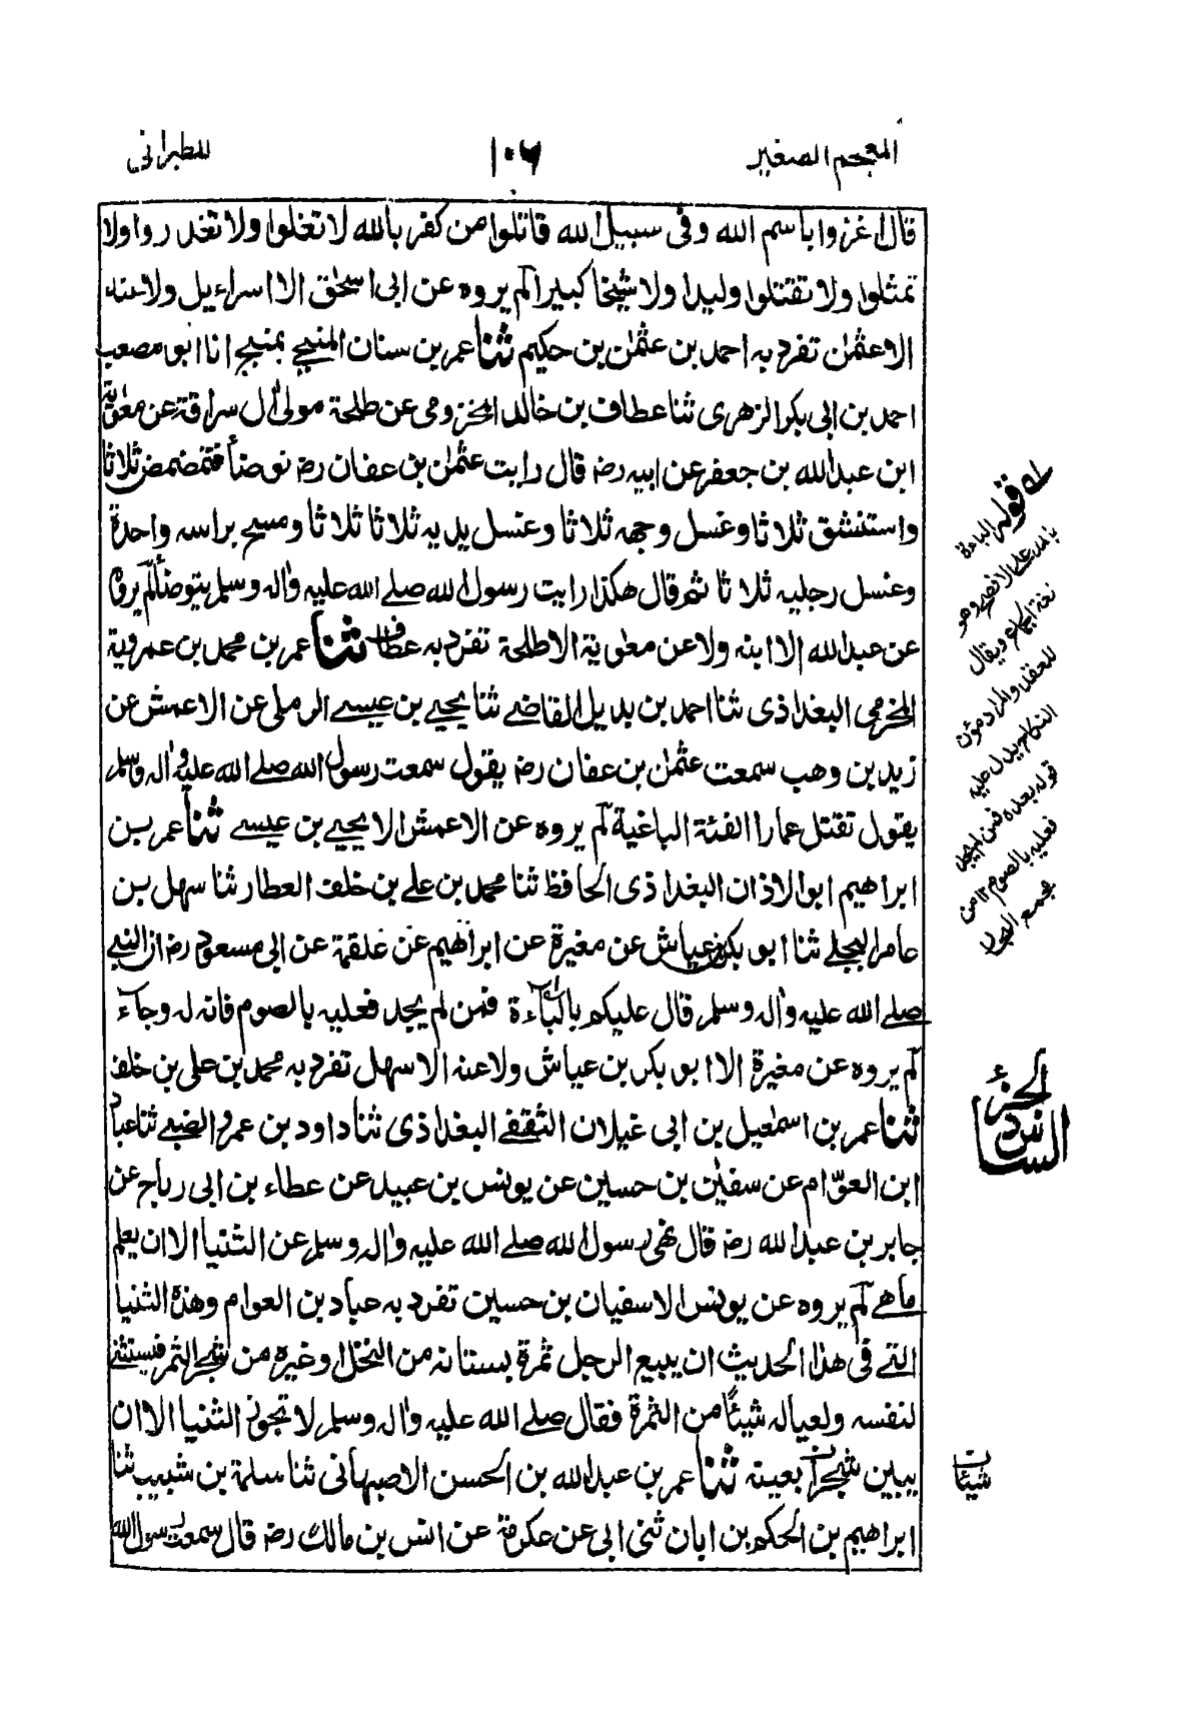 المعجم الصغير
١٠٦
للطبراني
قال اغزوا باسم الله وفي سبيل الله قاتلوا من كفر بالله لا تغلوا ولا تغدروا ولا
تمثلوا ولا تقتلوا وليدا ولا شيخا كبيرا لم يروه عن ابي اسحٰق الا اسراءيل ولا عنه
الا عثمٰن تفرد به احمد بن عثمٰن بن حكيم ثنا عمر بن سنان المنبجي بمنبج انا ابو مصعب
احمد بن ابي بكر الزهري ثنا عطاف بن خالد المخزومي عن طلحة مولى اٰل سراقة عن معٰوية
ابن عبد الله بن جعفر عن ابيه رضه قال رايت عثمٰن بن عفان رضه توضأ فتمضمض ثلاثا
واستنشق ثلاثا وغسل وجهه ثلاثا وغسل يديه ثلاثا ثلاثا ومسح براسه واحدة
وغسل رجليه ثلاثا ثا ثم قال هكذا رايت رسول الله صلے الله عليه واٰله وسلم يتوضأ لم يروه
عن عبد الله الا ابنه ولا عن معٰوية الا طلحة تفرد به عطاف ثنا عمر بن محمد بن عمرويه
المخرمي البغداذي ثنا احمد بن بديل القاضے ثنا يحيے بن عيسے الرملي عن الاعمش عن
زيد بن وهب سمعت عثمٰن بن عفان رضه يقول سمعت رسول الله صلے الله عليه واٰله وسلم
يقول تقتل عمارا الفئة الباغية لم يروه عن الاعمش الا يحيے بن عيسے ثنا عمر بن
ابراهيم ابو الاذان البغداذي الحافظ ثنا محمد بن علي بن خلف العطار ثنا سهل بن
عامر البجلے ثنا ابو بكر بن عياش عن مغيرة عن ابراهيم عن علقمة عن ابي مسعود رضه ان النبے
صلے الله عليه واٰله وسلم قال عليكم بالباءة فمن لم يجد فعليه بالصوم فانه له وجاء
لم يروه عن مغيرة الا ابو بكر بن عياش ولا عنه الا سهل تفرد به محمد بن علي بن خلف
ثنا عمر بن اسمٰعيل بن ابي غيلان الثقفے البغداذي ثنا داود بن عمرو الضبے ثنا عباد
ابن العوّام عن سفيٰن بن حسين عن يونس بن عبيد عن عطاء بن ابي رباح عن
جابر بن عبد الله رضه قال نهى رسول الله صلے الله عليه واٰله وسلم عن الثنيا الا ان يعلم
ما هے لم يروه عن يونس الا سفيان بن حسين تفرد به عباد بن العوام وهذه الثنيا
التے في هذا الحديث ان يبيع الرجل ثمرة بستانه من النخل او غيره من شجر الثمر فيستثنے
لنفسه ولعياله شيئا من الثمرة فقال صلے الله عليه واٰله وسلم لا تجوز الثنيا الا ان
يبين شجرا بعينه ثنا عمر بن عبد الله بن الحسن الاصبهاني ثنا سلمة بن شبيب ثنا
ابراهيم بن الحكم بن ابان ثني ابي عن عكرمة عن انس بن مالك رضه قال سمعت رسول الله
له قوله الباءة
بالمد على الافصح وهو
لغة الجماع ويقال
للعقد والمراد مؤن
النكاح يدل عليه
قوله بعده فمن لم يجد
فعليه بالصوم ١٢ من
مجمع البحار
الجزء
السادس